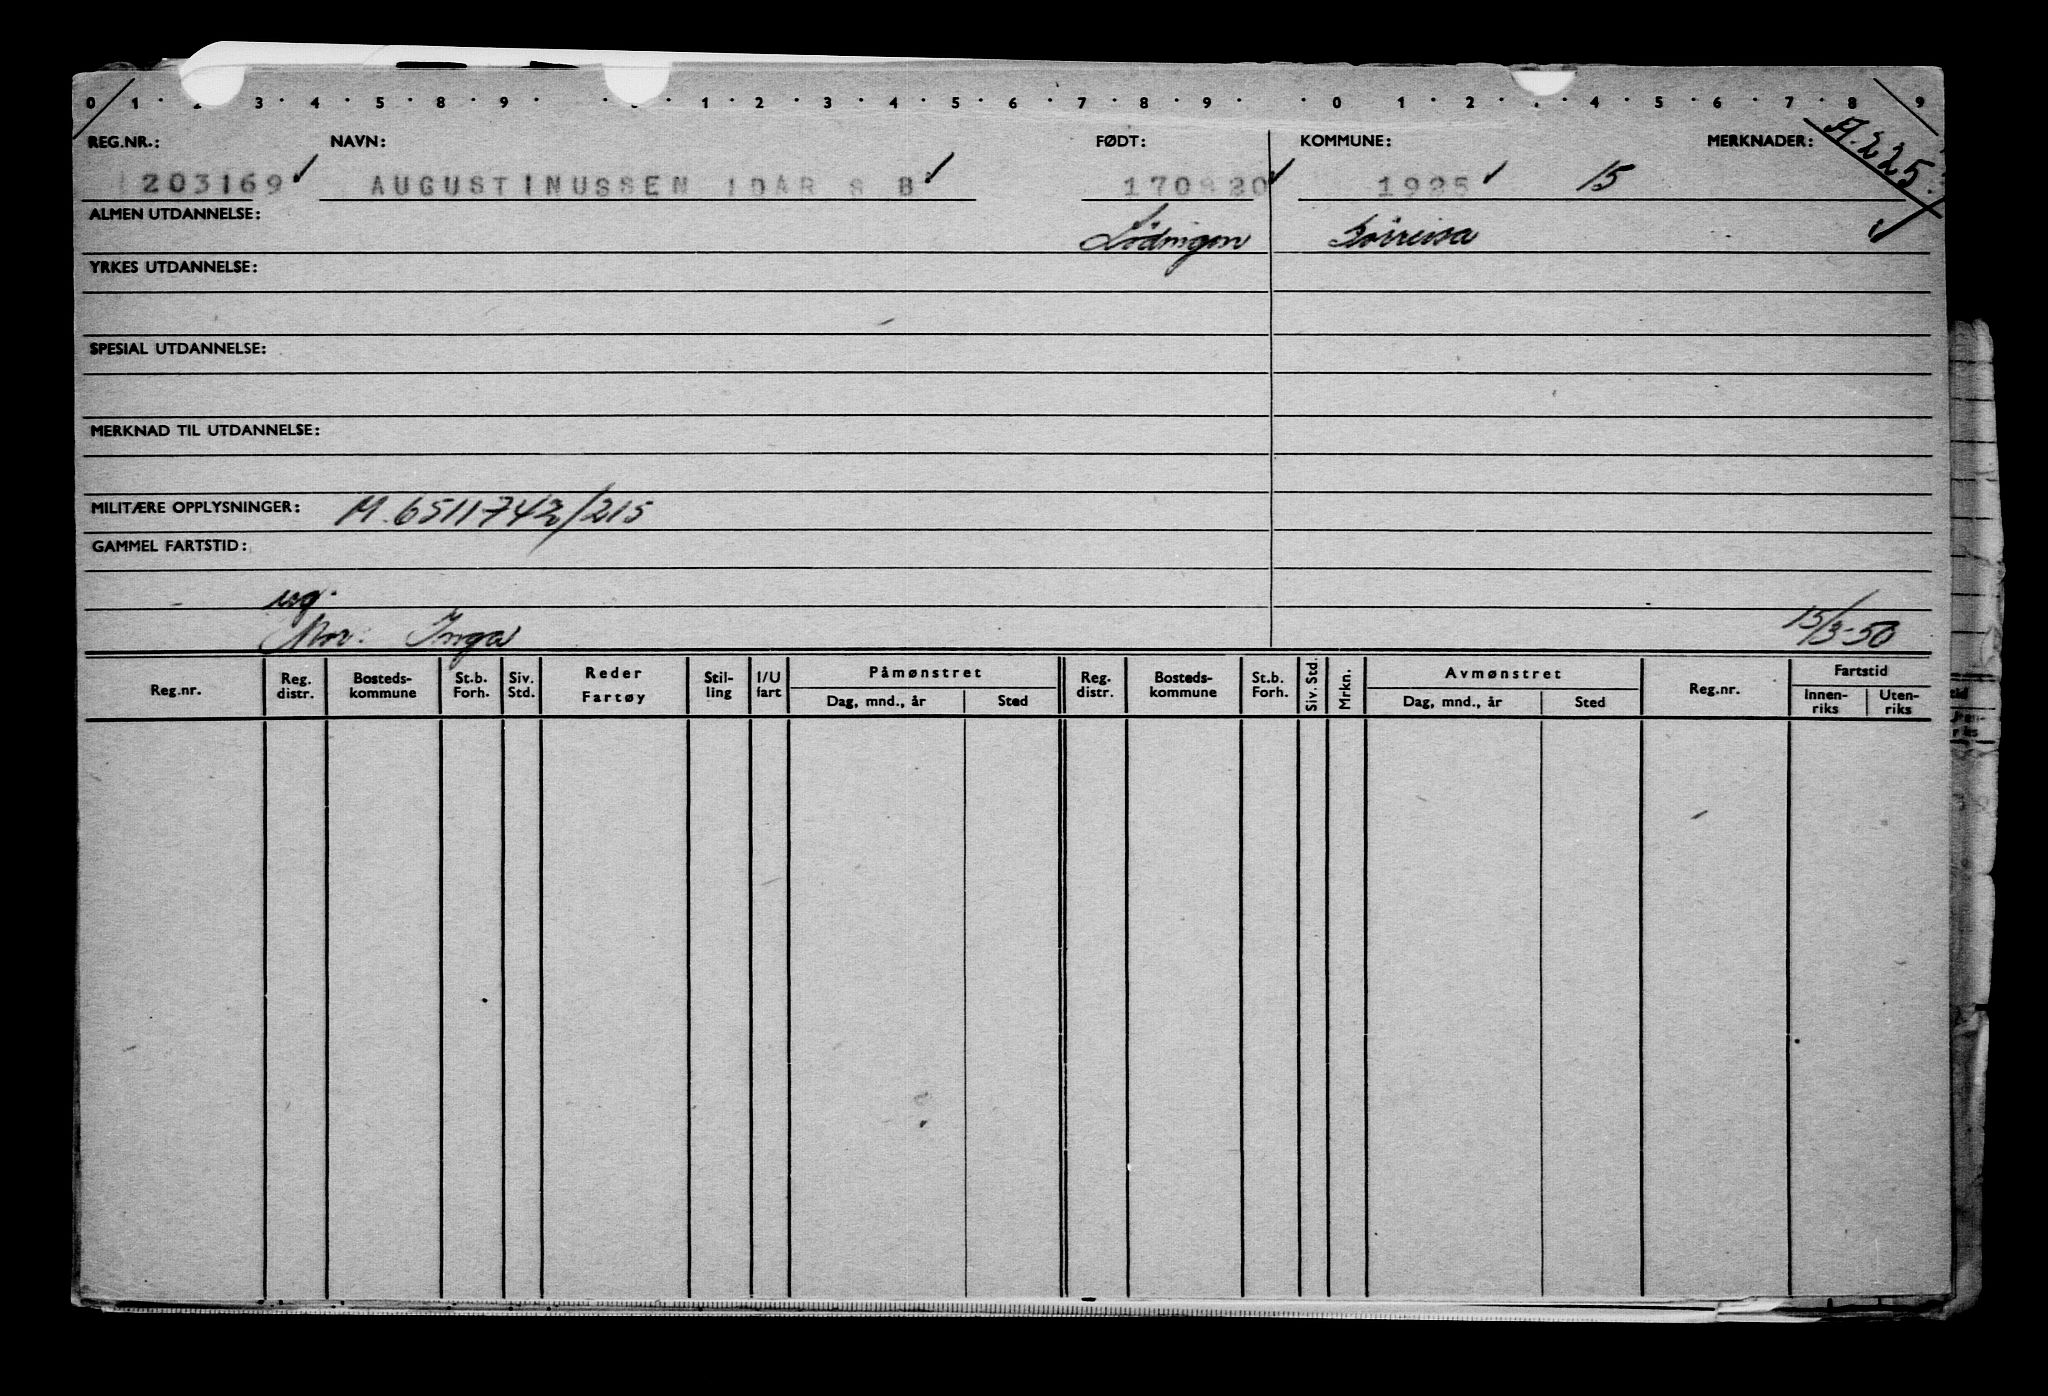 0 1 2 3 4 5 8 9 1 2 3 4 5 6 7 8 9 0 1 2 4 5 6 7 8 9
REG.NR.: NAVN: FØDT: KOMMUNE: MERKNADER: A.225.
203169 AUGUSTINUSSEN IDAR S B 170820 1925 15
ALMEN UTDANNELSE: Lödingen
YRKES UTDANNELSE:
SPESIAL UTDANNELSE:
MERKNAD TIL UTDANNELSE:
MILITÆRE OPPLYSNINGER: M. 6511742/215
GAMMEL FARTSTID:
ug.
Mor: Inga 15/3-50
Reg.nr. Reg. distr. Bosteds-kommune St.b. Forh. Siv. Std. Reder Fartøy Stil-ling I/U fart Påmønstret Dag, mnd., år Sted Reg. distr. Bosteds-kommune St.b. Forh. Siv. Std. Mrkn. Avmønstret Dag, mnd., år Sted Reg.nr. Fartstid Innen-riks Uten-riks